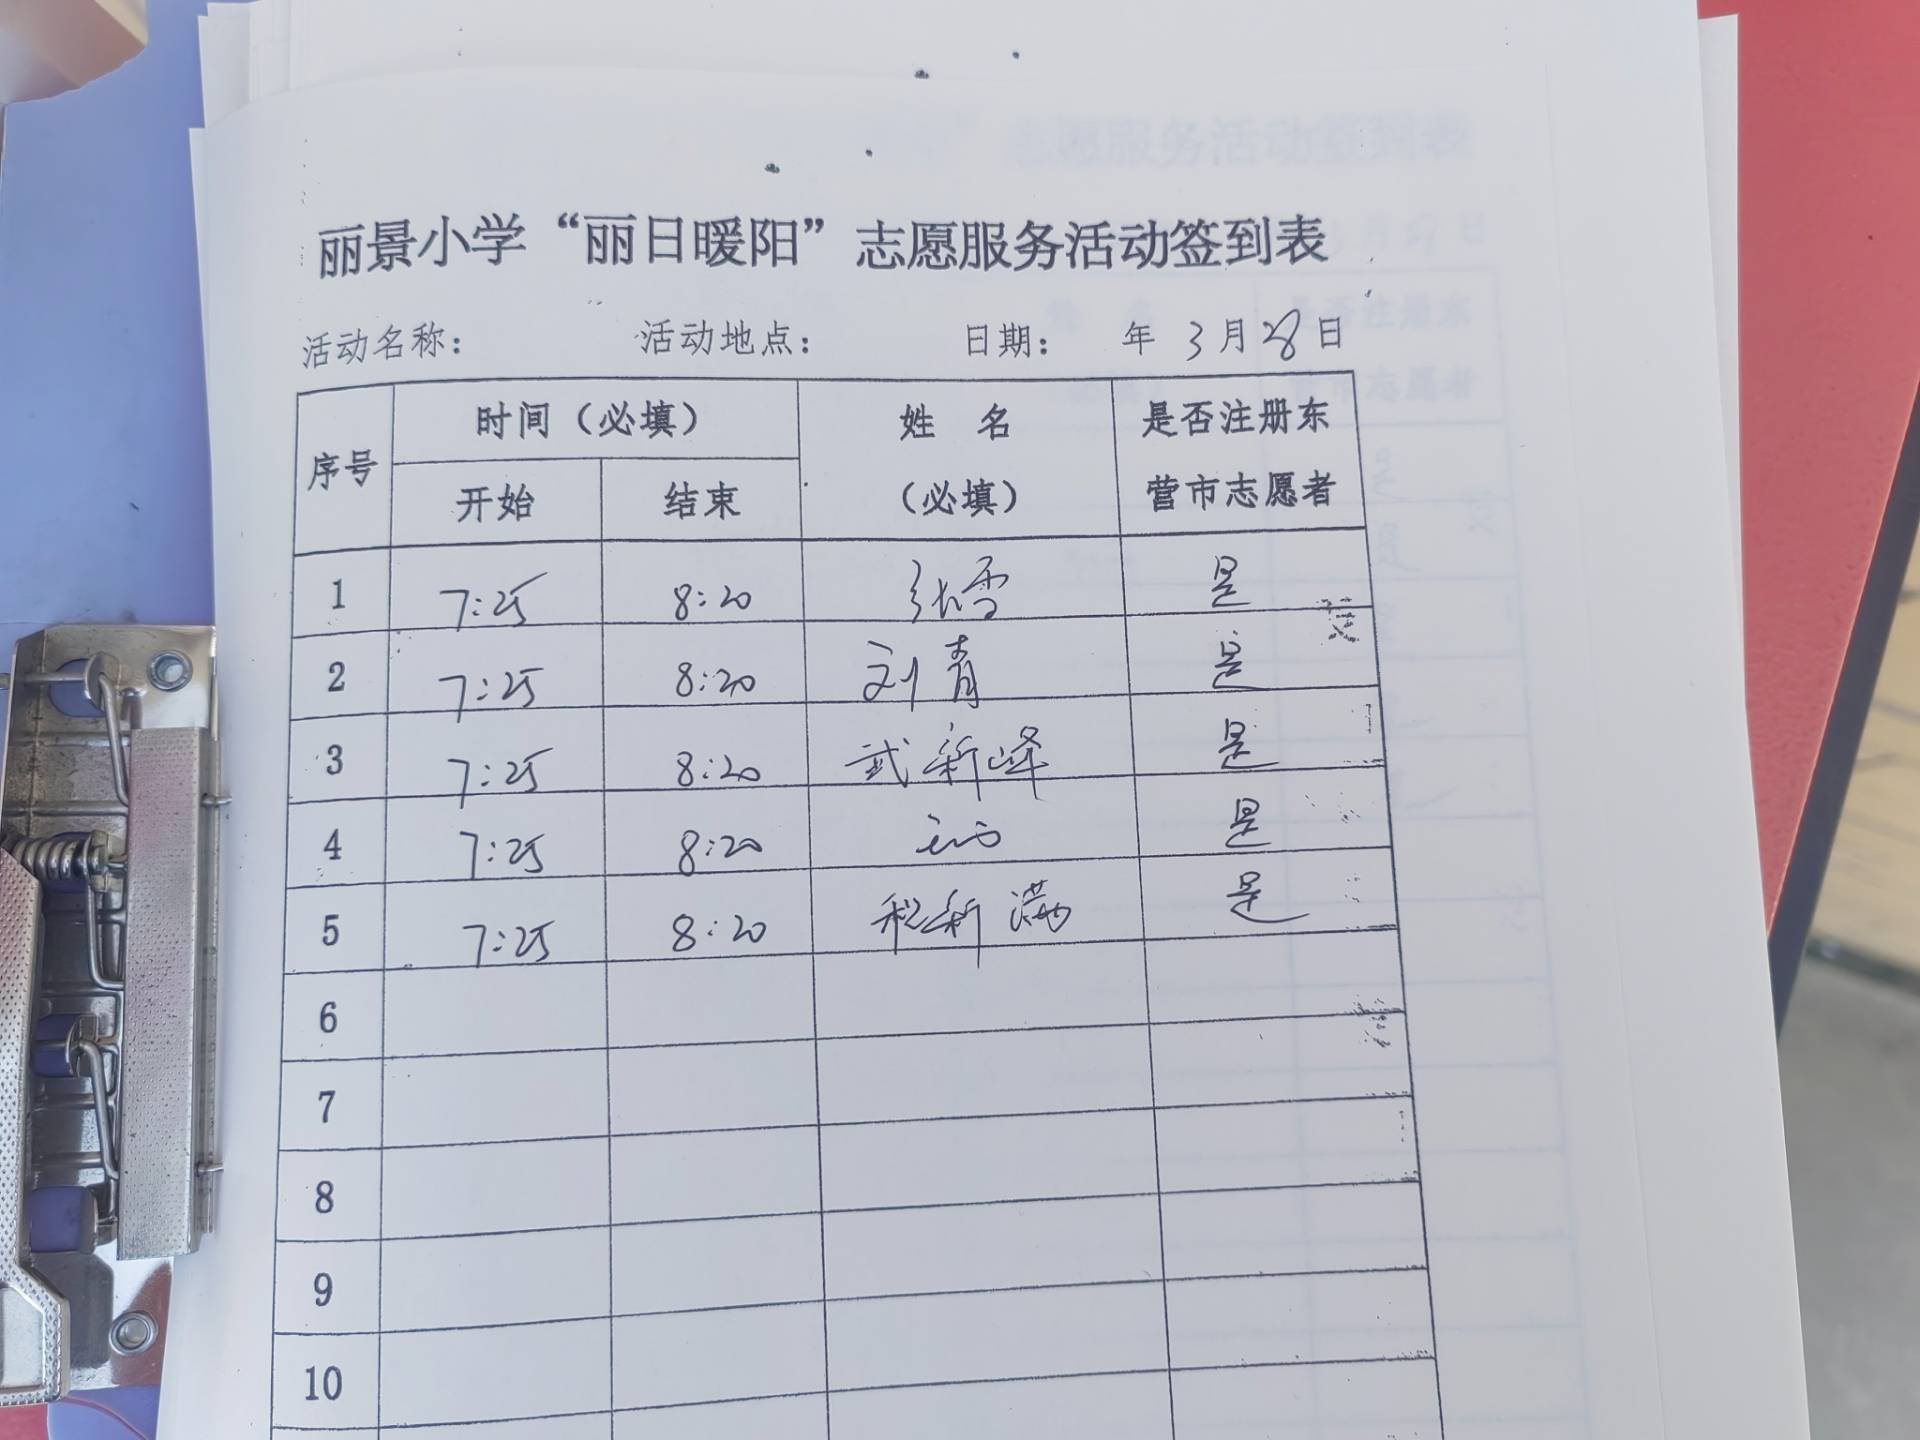 丽景小学“丽日暖阳”志愿服务活动签到表
活动名称： 活动地点： 日期： 年 3月28日
序号 时间（必填） 姓 名（必填） 是否注册东营市志愿者
开始 结束
1 7:25 8:20 张雪 是
2 7:25 8:20 刘青 是
3 7:25 8:20 武新峰 是
4 7:25 8:20 是
5 7:25 8:20 程新满 是
6
7
8
9
10